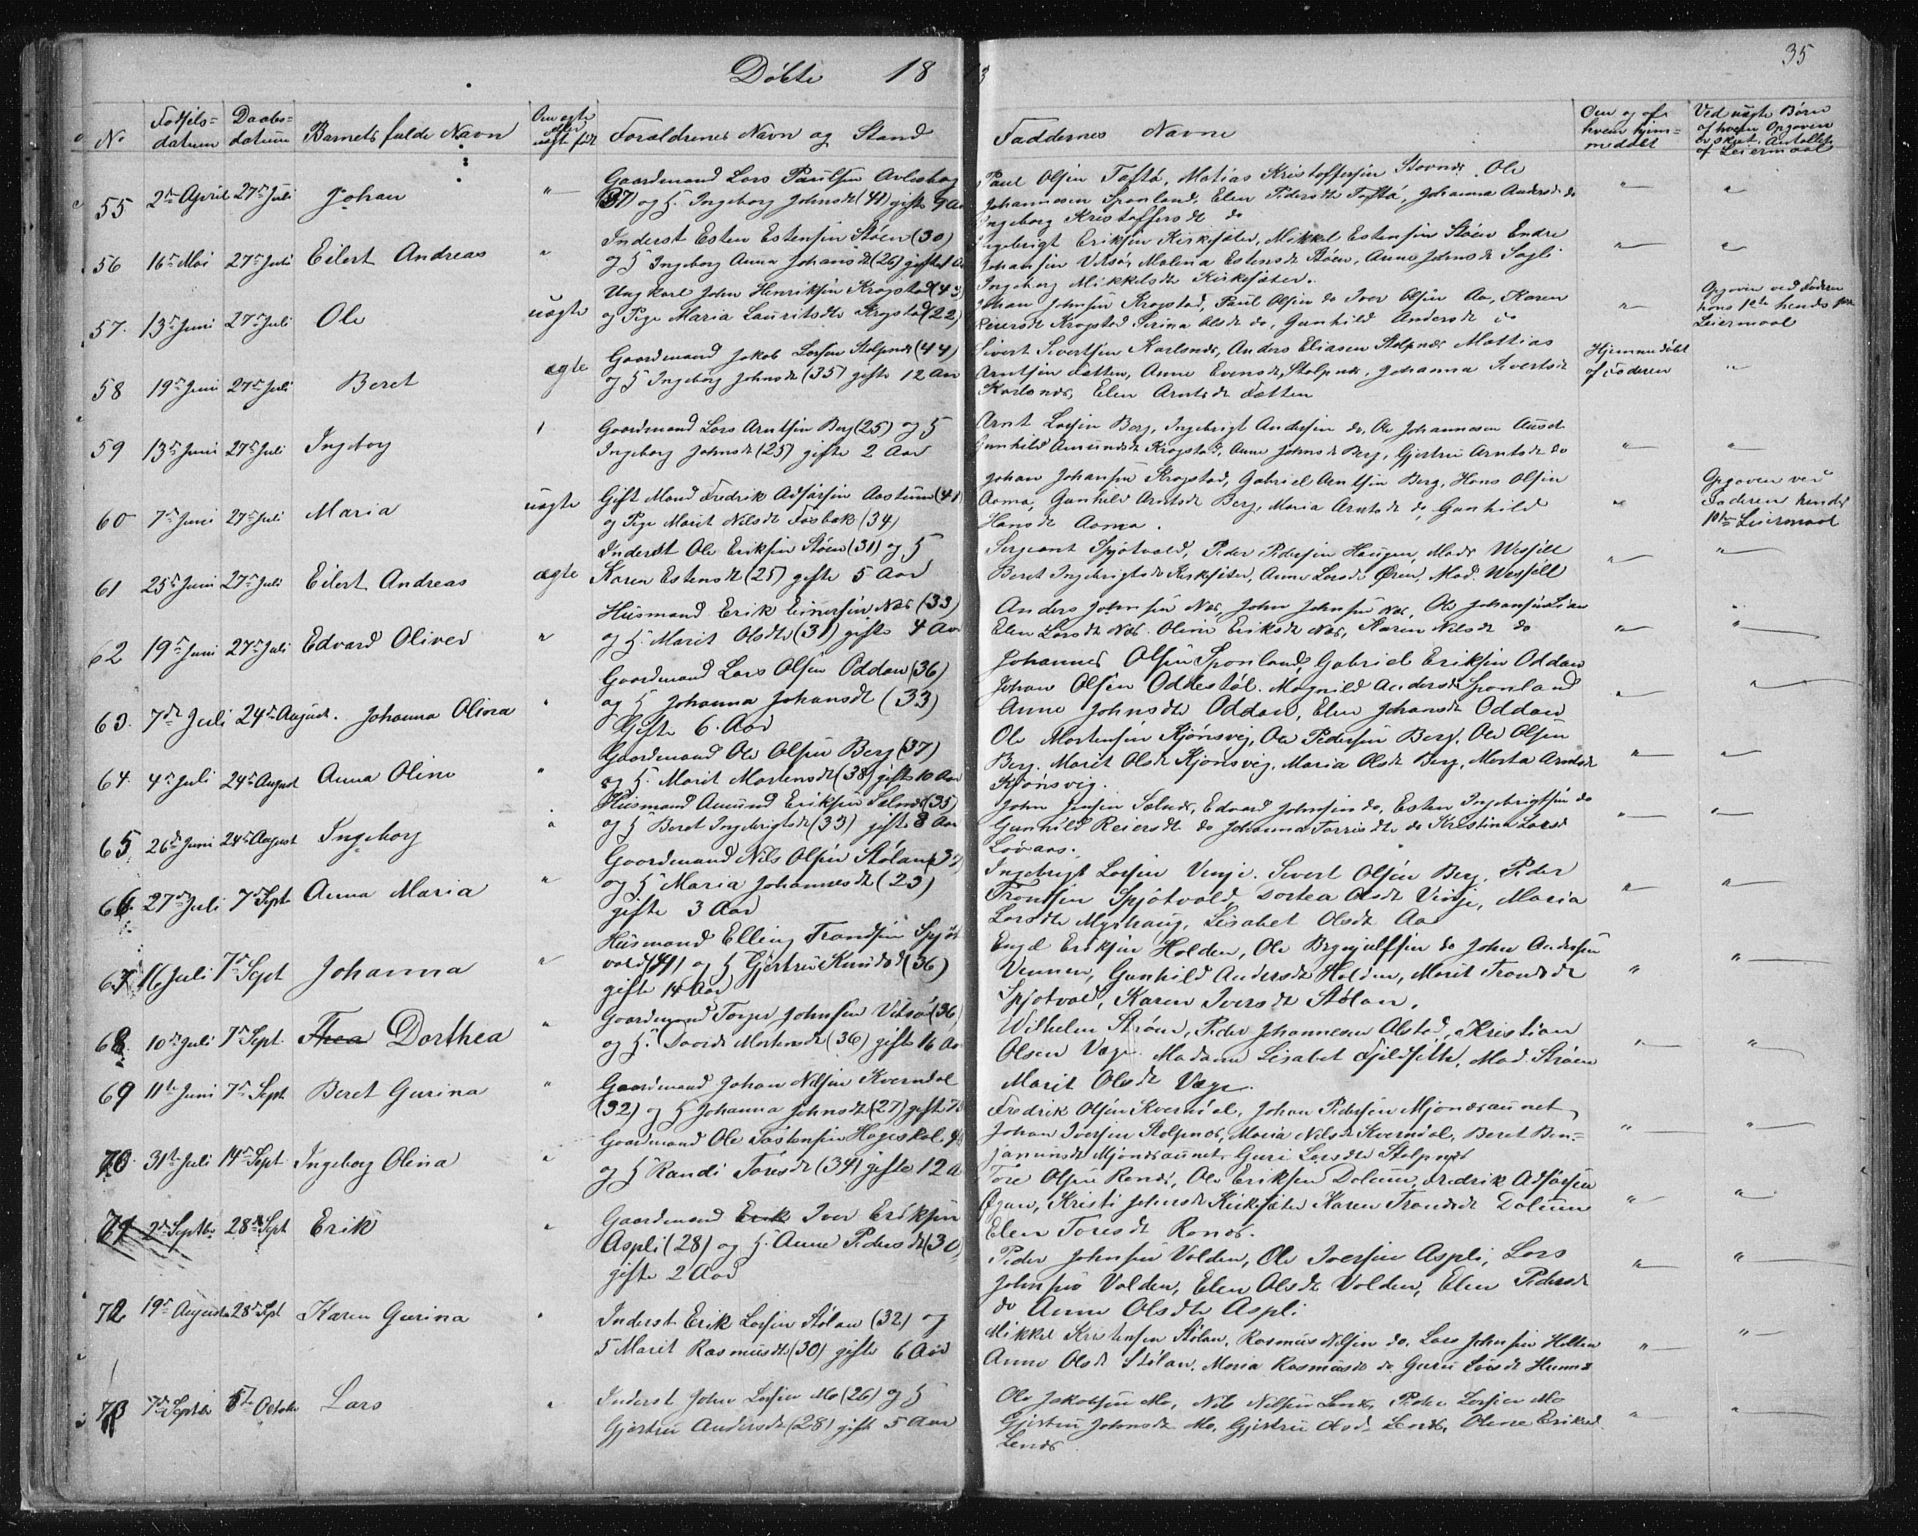 Döbte 18
35
No
Födsels-
datum
Daabs-
datum
Barnets fulde Navn
Om ægte
eller
uægte født
Forældrenes Navn og Stand
Faddernes Navne
Om og af
hvem hjem-
medøbt
Ved uægte Børn
af hvem Opgaven
er skeet. Antallet
af Leiermaal
55 2den April 27de Juli Johan "
Gaardmand Lars Paulsen
37 og H. Ingeborg Johnsdt (41) gifte 9 Aar
Paul Olsen Taftø, Matias Kristoffersen Stovnes, Ole
Johannesen Sponland, Elen Pedersdt Taftø, Johanna Andersdt do
Ingeborg Kristoffersdt do
56 16de Mai 27de Juli Eilert Andreas "
Inderst Esten Estensen Støen (30)
og H Ingeborg Anna Johansdt (26) gifte 1 Aar
Ingebrigt Eriksen Kirksæter, Mikkel Estensen Støen Endre
Johansen Vitsø, Malena Estensdt Støen, Anne Johnsdt
Ingeborg Mikkelsdt Kirksæter.
57. 13de Juni 27de Juli Ole uægte
Ungkarl John Henriksen Krogstad (43)
og Pige Maria Lauritsdtr Krogstad (22)
Johan Johnsen Krogstad, Paul Olsen do Iver Olsen Aa, Karen
Reiersdt Krogstad Serina Olsdt do, Gunhild Andersdt do
Opgaven ved Faderen
hans 1ste hendes
Leiermaal
58 19de Juni 27de Juli Beret ægte
Gaardmand Jakob Larsen Stolpnes (44)
og H Ingeborg Johnsdt (35) gifte 12 Aar
Sivert Sivertsen Karlsnes, Anders Eliasen Stolpnes Mattias
Arntsen Fætten, Anne Evensdt Stolpnes, Johanna Sivertsdt
Karlsnes, Elen Arntsdt Fætten
Hjemmedøbt
af Faderen
59 13de Juni 27de Juli Ingeborg
Gaardmand Lars Arntsen Berg (25) og H
Ingeborg Johnsdt (25) gifte 2 Aar
Arnt Larsen Berg, Ingebrigt Andersen do, Ole Johannesen
Gunhild Amundsdt Krogstad, Anne Johnsdt Berg, Gjertru Arntsdt do
60 7de Juni 27de Juli Maria uægte
Gift Mand Fredrik Adsersen (41)
og Pige Marit Nilsdt (34)
Johan Johansen Krogstad, Gabriel Arntsen Berg, Hans Olsen
Aama, Gunhild Arntsdt Berg, Maria Arntsdt do, Gunhild
Hansdt Aama.
Opgaven ved
Faderen hendes
1ste Leiermaal
61 25de Juni 27de Juli Eilert Andreas ægte
Inderst Ole Eriksen Støen (31) og H
Karen Estensdt (25) gifte 5 Aar
Sergeant Spjøtvold, Peder Pedersen Haugen, Mads Wessell
Beret Ingebrigtsdt Kirksæter, Anne Larsdt Øren, Mad. Wessell
62 19de Juni 27de Juli Edvard Oliver "
Husmand Erik Einersen Næs (33)
og H. Marit Olsdtr (31) gifte 4 Aar
Anders Johnsen Næs, John Johnsen Næs, Ole Johansen Lian
Elen Larsdt Næs. Oline Eriksdt Næs, Karen Nilsdt do
63. 7de Juli 24de August. Johanna Olina
Gaardmand Lars Olsen Oddan (36)
og H Johanna Johansdt (33)
Gifte 6. Aar
Johannes Olsen Sponland, Gabriel Eriksen Oddan
Johan Olsen Oddestøl. Magnild Andersdt Sponland
Anne Johnsdtr Oddan, Elen Johansdt Oddan
64. 4de Juli 24de August Anna Oline
Gaardmand Ole Olsen Berg (37)
og H. Marit Mortensdt (38) gifte 10 Aar
Ole Mortensen Kjønsvig, Ole Pedersen Berg, Ole Olsen
Berg. Marit Olsdt Kjønsvig. Maria Olsdt Berg, Marta Arntsdt
Kjønsvig.
65 26de Juni 24de August Ingeborg
Husmand Amund Eriksen Selnes (35)
og H Beret Ingebrigtsdt (33) gifte 8 Aar
John Jensen Selnes, Edvard Johnsen do, Esten Ingebrigtsen do
Gunhild Reiersdt do Johanna Torrisdtr do Kristina Larsdt
Løvaas.
66. 27de Juli 7de Sept. Anna Maria
Gaardmand Nils Olsen Stølan (37)
og H Maria Johannesdt (23)
gifte 3 Aar
Ingebrigt Larsen Vinje. Sivert Olsen Berg, Peder
Trondsen Spjøtvold, Dortea Olsdt Vinje, Maria
Larsdtr Myrhaug, Lisabet Olsdt Aa
67 16 Juli 7de Sept Johanna
Husmand Elling Trondsen Spjøt
vold (41) og H Gjertru Knudsdt (36)
gifte 14 Aar
Engel Eriksen Holden, Ole Brynjulfsen do John Andersen
Vennen, Gunhild Andersdt Holden, Marit Trondsdt
Spjøtvold, Karen Iversdt Stølan.
68. 10de Juli 7de Sept. Thea Dorthea
Gaardmand Torger Johnsen Vitsø (36)
og H. Mortensdt (36) gifte 16 Aar
Wilhelm Strøm, Peder Johannesen Olstad, Kristian
Olsen Væge. Madame Lisabet Fjeldseth, Mad. Strøm
Marit Olsdt Væge.
69 11te Juni 7de Sept Beret Gurina
Gaardmand Johan Nilsen Kverndal
(32) og H Johanna Johnsdt (27) gifte 7
Fredrik Olsen Kverndal, Johan Pedersen Mjønesaunet
Johan Iversen Stolpnes, Maria Nilsdt Kverndal, Beret Ben-
jaminsdt Mjønesaunet, Guri Larsdtr Stolpnes
70. 31te Juli 14de Sept Ingeborg Olina
Gaardmand Ole Tostensen
og H Randi Toresdt (34) gifte 12 A
Tore Olsen Rones, Ole Eriksen Dolum, Fredrik Adsersen
Øgan, Kristi Johnsdt Kirksæter Karen Trondsdt Dolum
Elen Toresdt Rones.
71 2de Septbr 28de Sept Erik
Gaardmand Erik Iver Eriksen
Aspli (28) og H. Anne Pedersdt (30)
gifte 2 Aar
Peder Johnsen Volden, Ole Iversen Aspli, Lars
Johnsen Volden, Elen Olsdt Volden, Elen Pedersdt
do Anne Olsdtr Aspli
72 19de August 28de Sept Karen Gurina
Inderst Erik Larsen Stølan (32) og
H Marit Rasmusdt (30) gifte 6 Aar
Mikkel Kristensen Stølan, Rasmus Nilsen do, Lars Johnsen Holten
Anne Olsdt Stølan, Maria Rasmusdt do Guru Larsdt
73 7de Septbr 5te Octobr Lars
Inderst John Larsen Mo (26) og H
Gjertru Andersdt (28) gifte 5 Aar
Ole Jakobsen Mo, Nils Nilsen Lenes, Peder Larsen Mo
Gjertru Johnsdt Mo, Gjertru Olsdt Lenes, Oline Eriksdt
Lenes